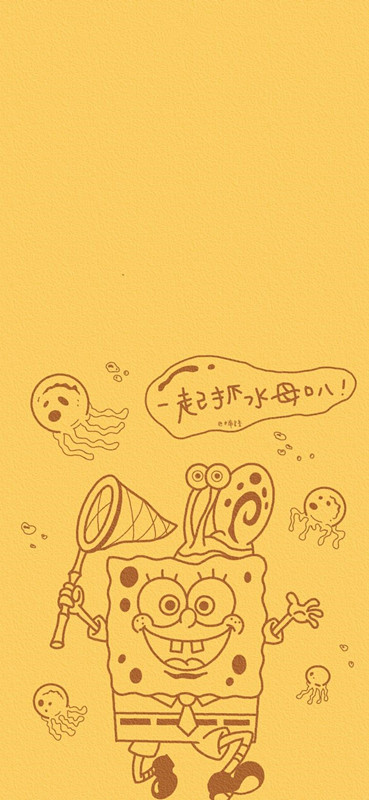 一起抓水母叭!